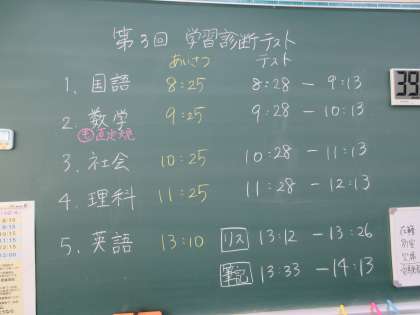 第3回 学習診断テスト
あいさつ テスト
1. 国語 8:25 8:28 － 9:13
2. 数学 9:25 9:28 － 10:13
3. 社会 10:25 10:28 － 11:13
4. 理科 11:25 11:28 － 12:13
5. 英語 13:10 リス 13:12 － 13:26
筆記 13:33 － 14:13
39